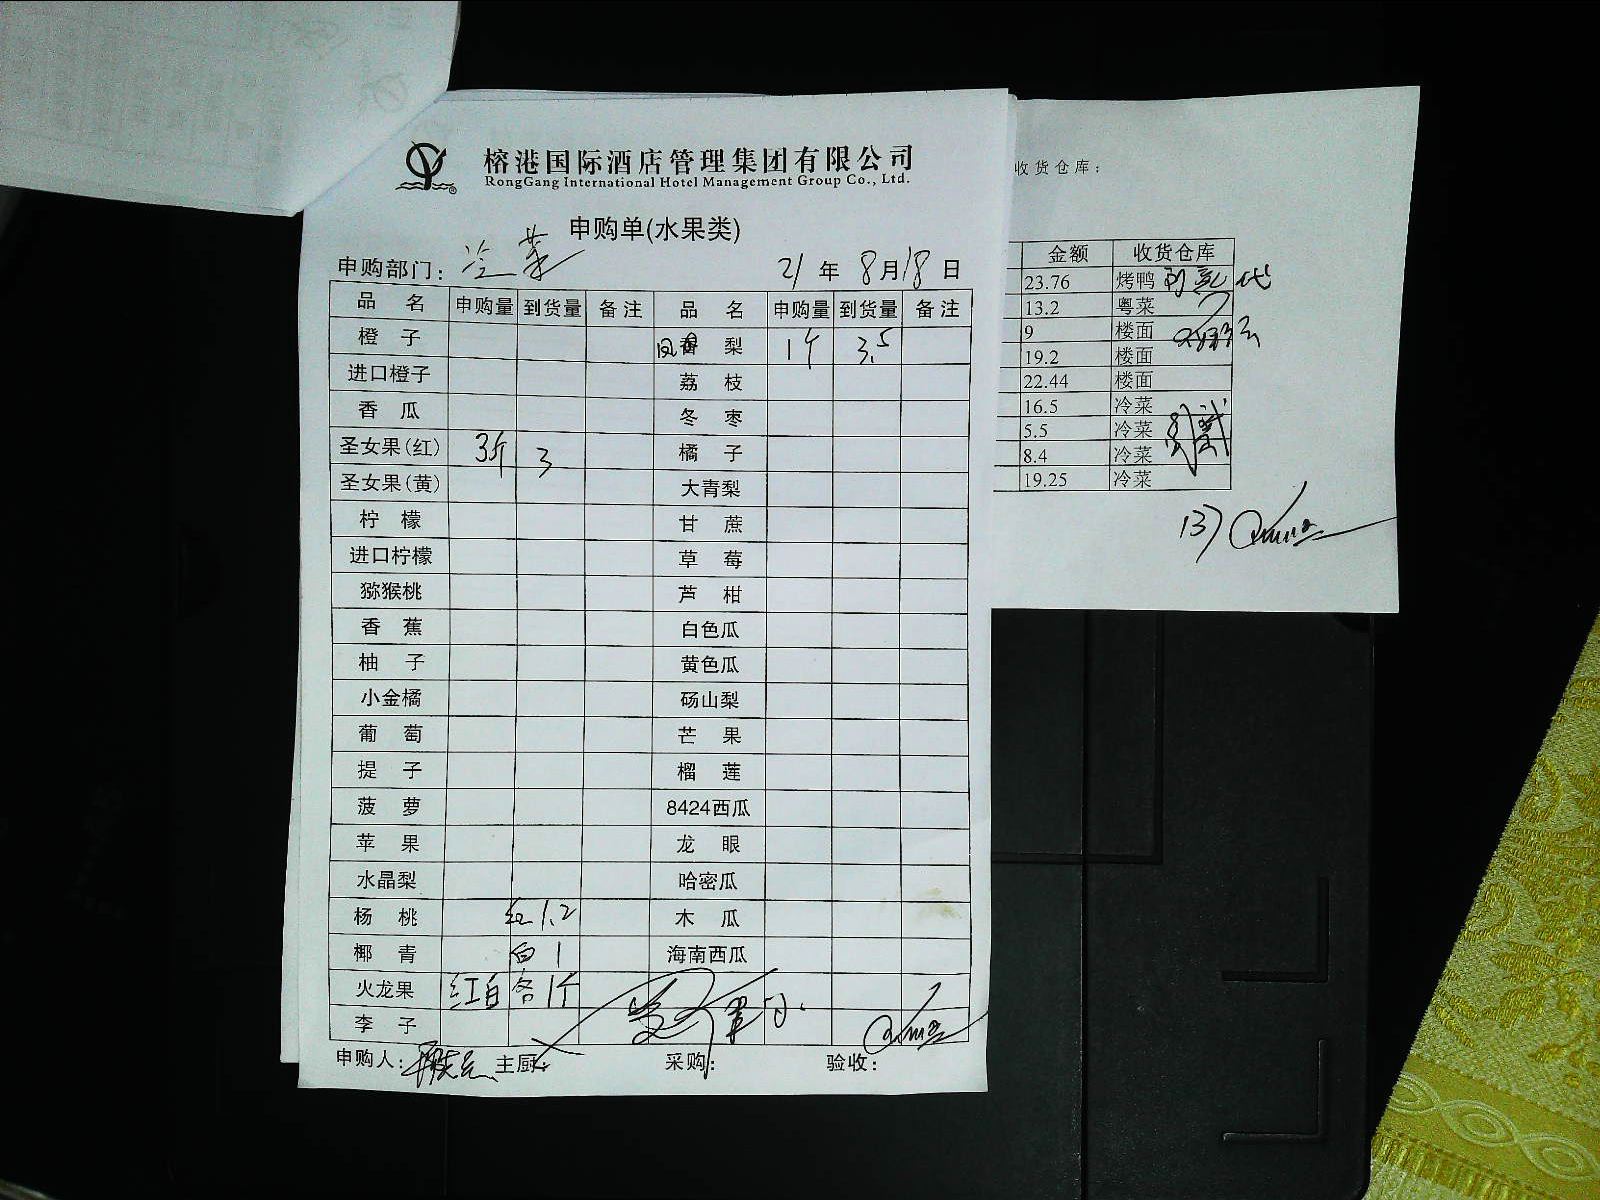 榕港国际酒店管理集团有限公司
RongGang International Hotel Management Group Co., Ltd.
申购单(水果类)
申购部门: 冷菜 21 年 8 月 18 日
品 名 申购量 到货量 备注 品 名 申购量 到货量 备注
橙 子 香 梨 1个 3.5
进口橙子 荔 枝
香 瓜 冬 枣
圣女果(红) 3斤 3 橘 子
圣女果(黄) 大青梨
柠 檬 甘 蔗
进口柠檬 草 莓
猕猴桃 芦 柑
香 蕉 白色瓜
柚 子 黄色瓜
小金橘 砀山梨
葡 萄 芒 果
提 子 榴 莲
菠 萝 8424西瓜
苹 果 龙 眼
水晶梨 哈密瓜
杨 桃 红 1.2 木 瓜
椰 青 白 1 海南西瓜
火龙果 红白各1斤
李 子
申购人: 主厨: 采购: 验收:
收货仓库:
金额 收货仓库
23.76 烤鸭 代
13.2 粤菜
9 楼面
19.2 楼面
22.44 楼面
16.5 冷菜
5.5 冷菜
8.4 冷菜
19.25 冷菜
137